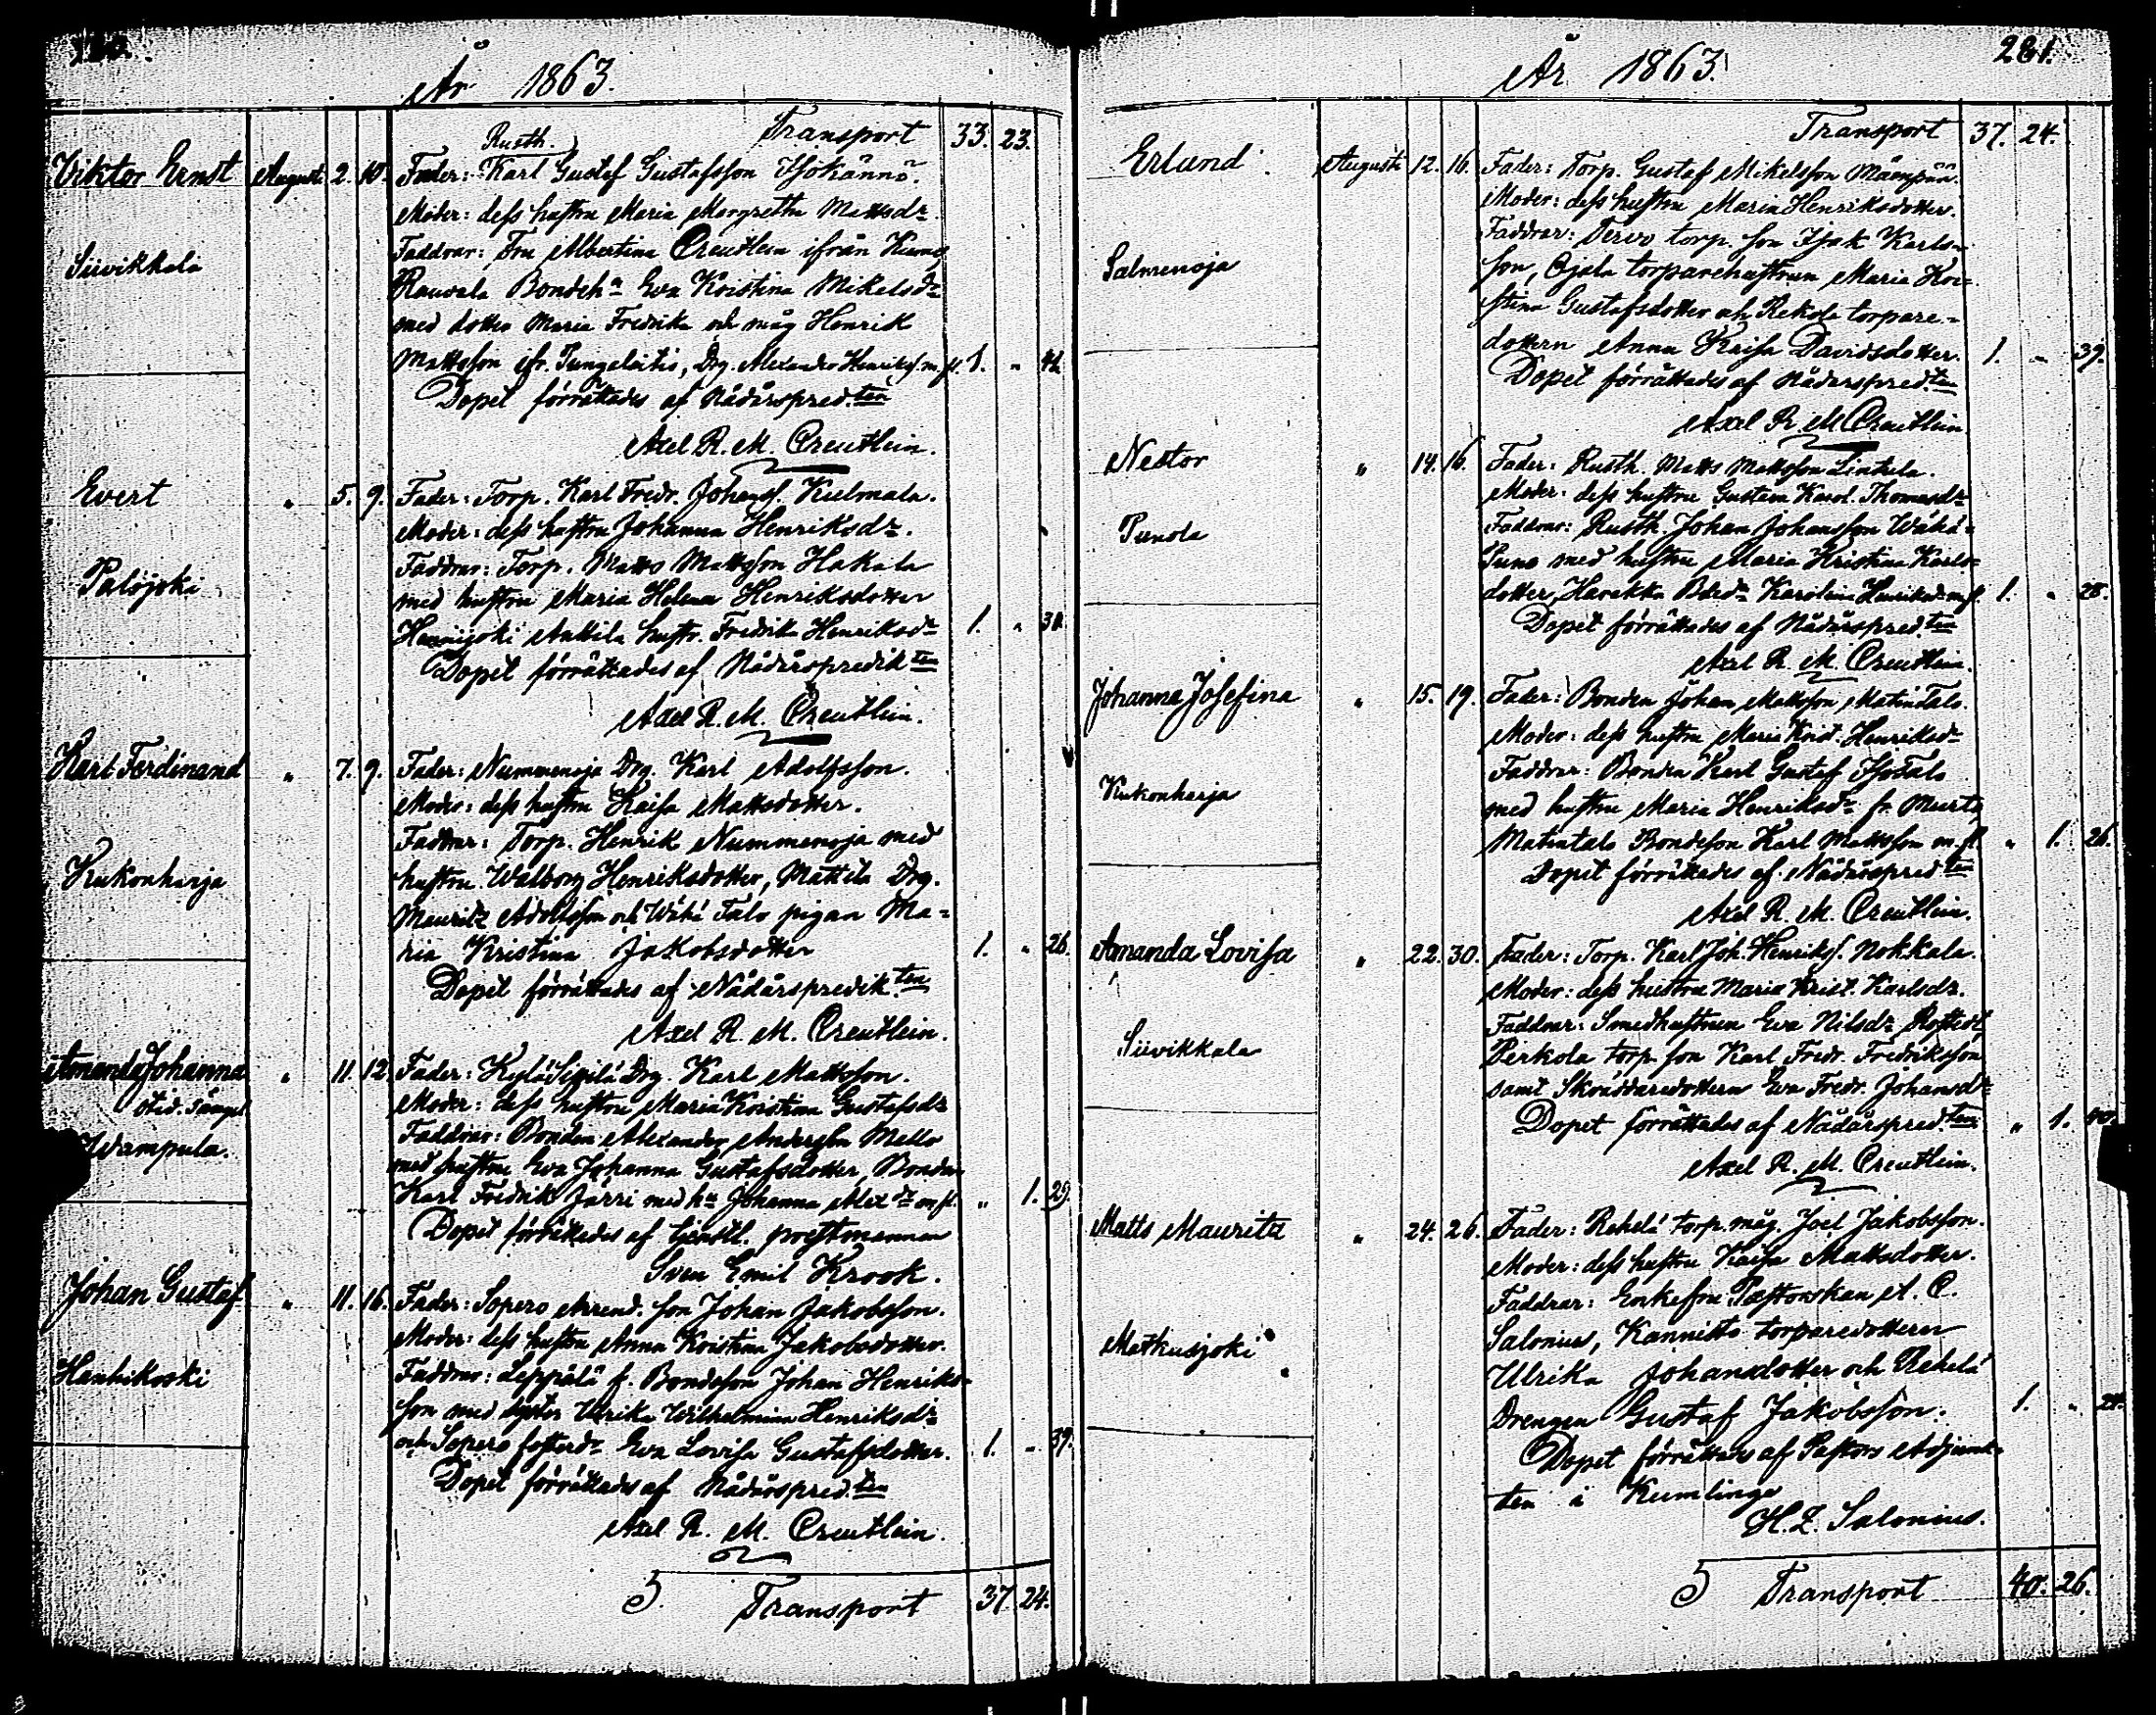 År 1863.
Transport 33. 23.
Rusth.
Viktor Ernst Augusti 2. 10. Fader: Karl Gustaf Gustafsson Isokännö.
Moder: dess hustru Maria Margretha Mattsdr.
Siivikkala
Faddrar: Fru Albertina Creutlein ifrån Kumo,
Rauvala Bondeh. Eva Kristina Mikelsdr
med dotter Maria Fredrika och måg Henrik
Mattsson ifr. Tungeloitis, Drg. Alexander Henrikss. m. fl. 1. „ 42.
Dopet förrättades af Nådårspred.ten
Axel R. M. Creutlein.
Evert „ 5. 9. Fader: Torp. Karl Fredr. Johanss. Kulmala.
Moder: dess hustru Johanna Henriksdr.
Palojoki
Faddrar: Torp. Matts Mattsson Hakala
med hustru Maria Helena Henriksdotter
Hennijoki Anttila hustr. Fredrika Henriksdr 1. „
Dopet förrättades af Nådårspredik.ten
Axel R. M. Creutlein.
Karl Ferdinand „ 7. 9. Fader: Nummenoja Drg. Karl Adolfsson.
Moder: dess hustru Kaisa Mattsdotter.
Kukonharja
Faddrar: Torp. Henrik Nummenoja med
hustru Walborg Henriksdotter, Mattila Drg.
Mauritz Adolfsson och Wähä Talo pigan Ma-
ria Kristina Jakobsdotter 1. „ 26.
Dopet förrättades af Nådårspredik.ten
Axel R. M. Creutlein.
Amanda Johanna „ 11. 12. Fader: Kylä Sipilä Drg. Karl Mattsson.
Moder: dess hustru Maria Kristina Gustafsdr
Wampula.
Faddrar: Bonden Alexander Andersson Mello
med hustru Eva Johanna Gustafsdotter, Bonden
Karl Fredrik Jarri med hu Johanna Alexdr m. fl. „ 1. 29.
Dopet förrättades af tjenstl. prestmannen
Sven Emil Krook.
Johan Gustaf „ 11. 16. Fader: Sopero Arrend. son Johan Jakobsson.
Moder: dess hustru Anna Kristina Jakobsdotter.
Hanhikoski
Faddrar: Leppälä f. Bondeson Johan Henriks-
son med syster Ulrika Wilhelmina Henriksdr
och Sopero fosterdr Eva Lovisa Gustafsdotter. 1. „ 39.
Dopet förrättades af Nådårspred.ten
Axel R. M. Creutlein.
5. Transport 37. 24.
281.
År 1863.
Transport 37. 24.
Erlund Augusti 12. 16. Fader: Torp. Gustaf Mikelsson Mäenpää.
Moder: dess hustru Maria Henriksdotter.
Salmenoja
Faddrar: Tervo torp. son Isak Karls-
son, Ojala torparehustrun Maria Kri-
stina Gustafsdotter och Rekola torpare-
dottern Anna Kaisa Davidsdotter. 1. „ 39.
Dopet förrättades af Nådårspred.ten
Axel R. M. Creutlein.
Nestor „ 14. 16. Fader: Rusth. Matts Mattsson Lintula.
Moder: dess hustru Gustava Karol. Thomasdr
Punola
Faddrar: Rusth. Johan Johansson Wähä-
Suno med hustru Maria Kristina Karls-
dotter, Harakka Bdedr Karolina Henriksdr m. fl. 1. „ 28.
Dopet förrättades af Nådårspred.ten
Axel R. M. Creutlein.
Johanna Josefina „ 15. 19. Fader: Bonden Johan Mattsson Matintalo.
Moder: dess hustru Maria Krist. Henriksdr
Kukonharja
Faddrar: Bonden Karl Gustaf Isotalo
med hustru Maria Henriksdr fr. Murto,
Matintalo Bondeson Karl Mattsson m. fl. „ 1. 26.
Dopet förrättades af Nådårspred.ten
Axel R. M. Creutlein.
Amanda Lovisa „ 22. 30. Fader: Torp. Karl Joh. Henrikss. Nokkala.
Moder: dess hustru Maria Krist. Karlsdr.
Siivikkala
Faddrar: Smedhustrun Eva Nilsdr Rostedt
Perkola torp. son Karl Fredr. Fredriksson
samt Skräddaredottern Eva Fredr. Johansdr
Dopet förrättades af Nådårspred.ten „ 1. 40.
Axel R. M. Creutlein.
Matts Mauritz „ 24. 26. Fader: Rehelä torp. måg. Joel Jakobsson.
Moder: dess hustru Kaisa Mattsdotter.
Matkusjoki
Faddrar: Enkefru Pastorskan A. C.
Salonius, Kannisto torparedottern
Ulrika Johansdotter och Rehelä
Drengen Gustaf Jakobsson. 1. „
Dopet förrättades af Pastors Adjunk-
ten i Kumlinge
H. Z. Salonius.
5 Transport 40. 26.